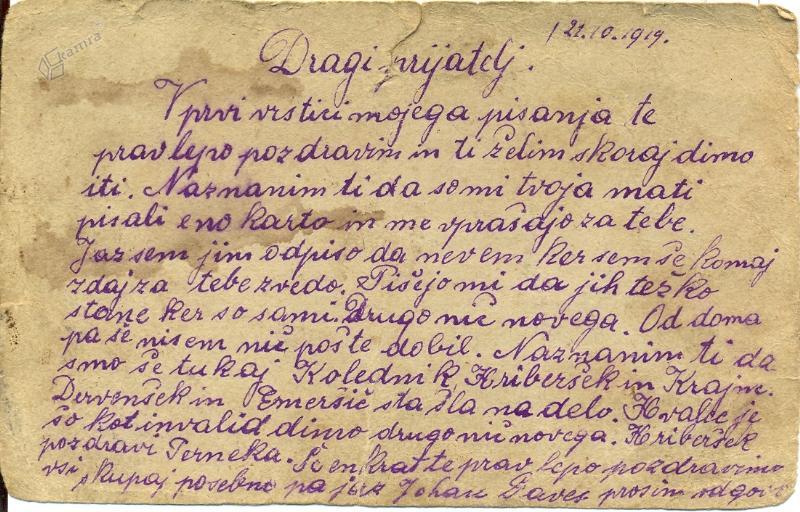 kamra
21.10.1919.
Dragi prijatelj.
V prvi vrstici mojega pisanja te
prav lepo pozdravim in ti želim skoraj dimo
iti. Naznanim ti da so mi tvoja mati
pisali eno karto in me vprašajo za tebe.
Jaz sem jim odpiso da nevem ker sem še komaj
zdaj za tebe zvedo. Pišejo mi da jih težko
stane ker so sami. Drugo nič novega. Od doma
pa še nisem nič pošte dobil. Naznanim ti da
smo še tukaj Kolednik, Hriberšek in Krajm.
Dervenšek in Emeršič sta šla na delo. Hvalec je
šo kot invalid dimo drugo nič novega. Hriberšek
pozdravi Terneka. Še enkrat te prav lepo pozdravimo
vsi skupaj posebno pa jaz Johan prosim odgovo